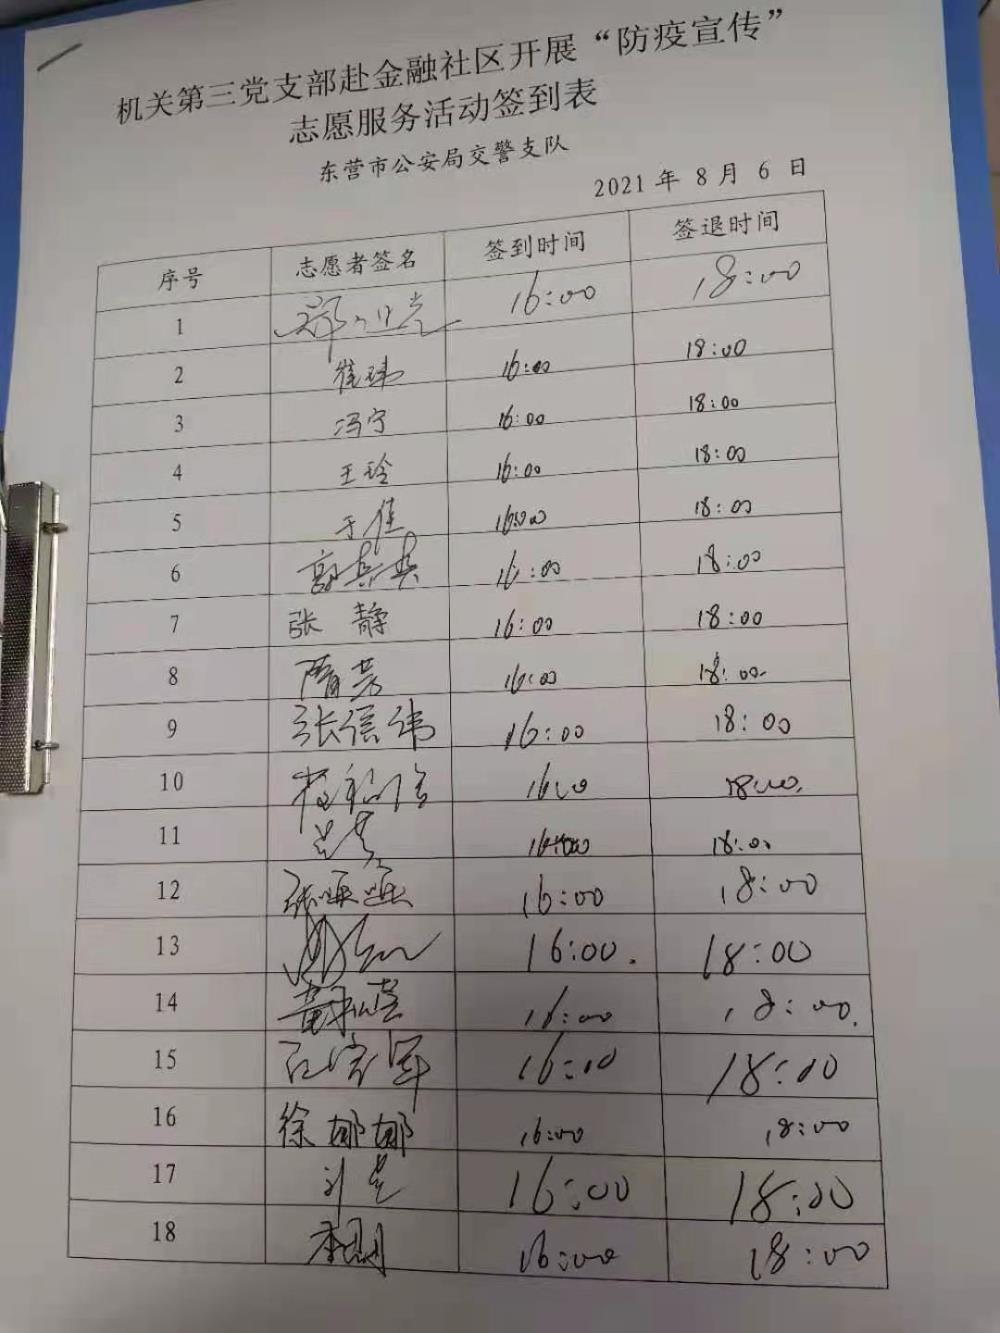 机关第三党支部赴金融社区开展“防疫宣传”
志愿服务活动签到表
东营市公安局交警支队
2021年8月6日
序号 志愿者签名 签到时间 签退时间
1 16:00 18:00
2 崔玮 16:00 18:00
3 冯宁 16:00 18:00
4 王玲 16:00 18:00
5 于佳 16:00 18:00
6 16:00 18:00
7 张静 16:00 18:00
8 隋芳 16:00 18:00
9 张信伟 16:00 18:00
10 16:00 18:00
11 16:00 18:00
12 16:00 18:00
13 16:00. 18:00
14 16:00 18:00.
15 16:00 18:00
16 徐娜娜 16:00 18:00
17 16:00 18:00
18 16:00 18:00